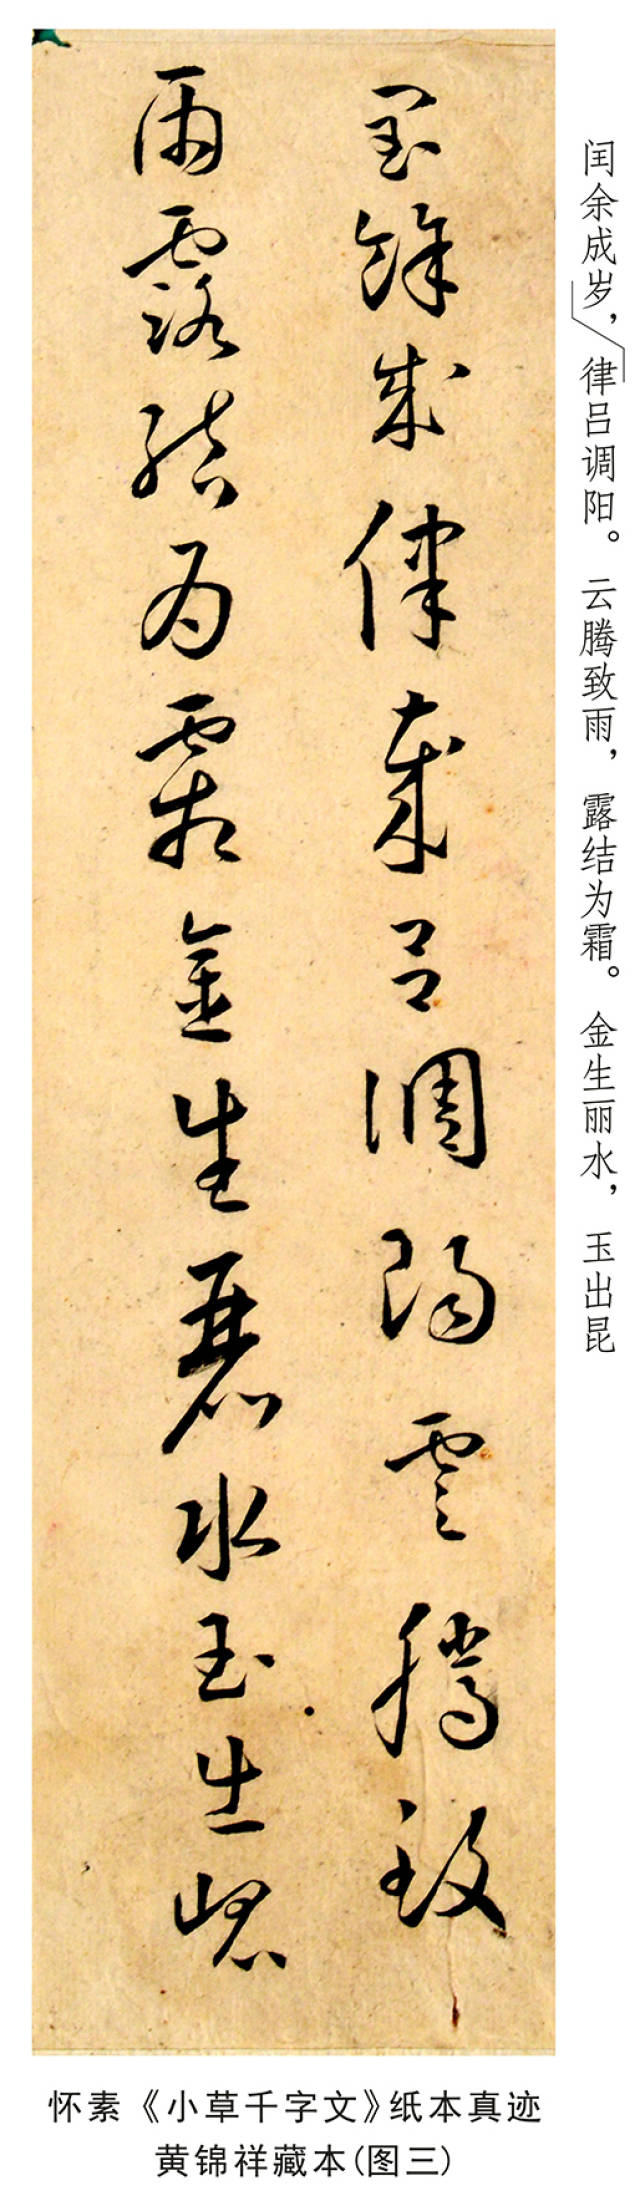 闰余成岁，律吕调阳。云腾致雨，露结为霜。金生丽水，玉出昆
閏餘成律歲呂調陽雲騰致
雨露結為霜金生麗水玉出崐
怀素《小草千字文》纸本真迹
黄锦祥藏本(图三)